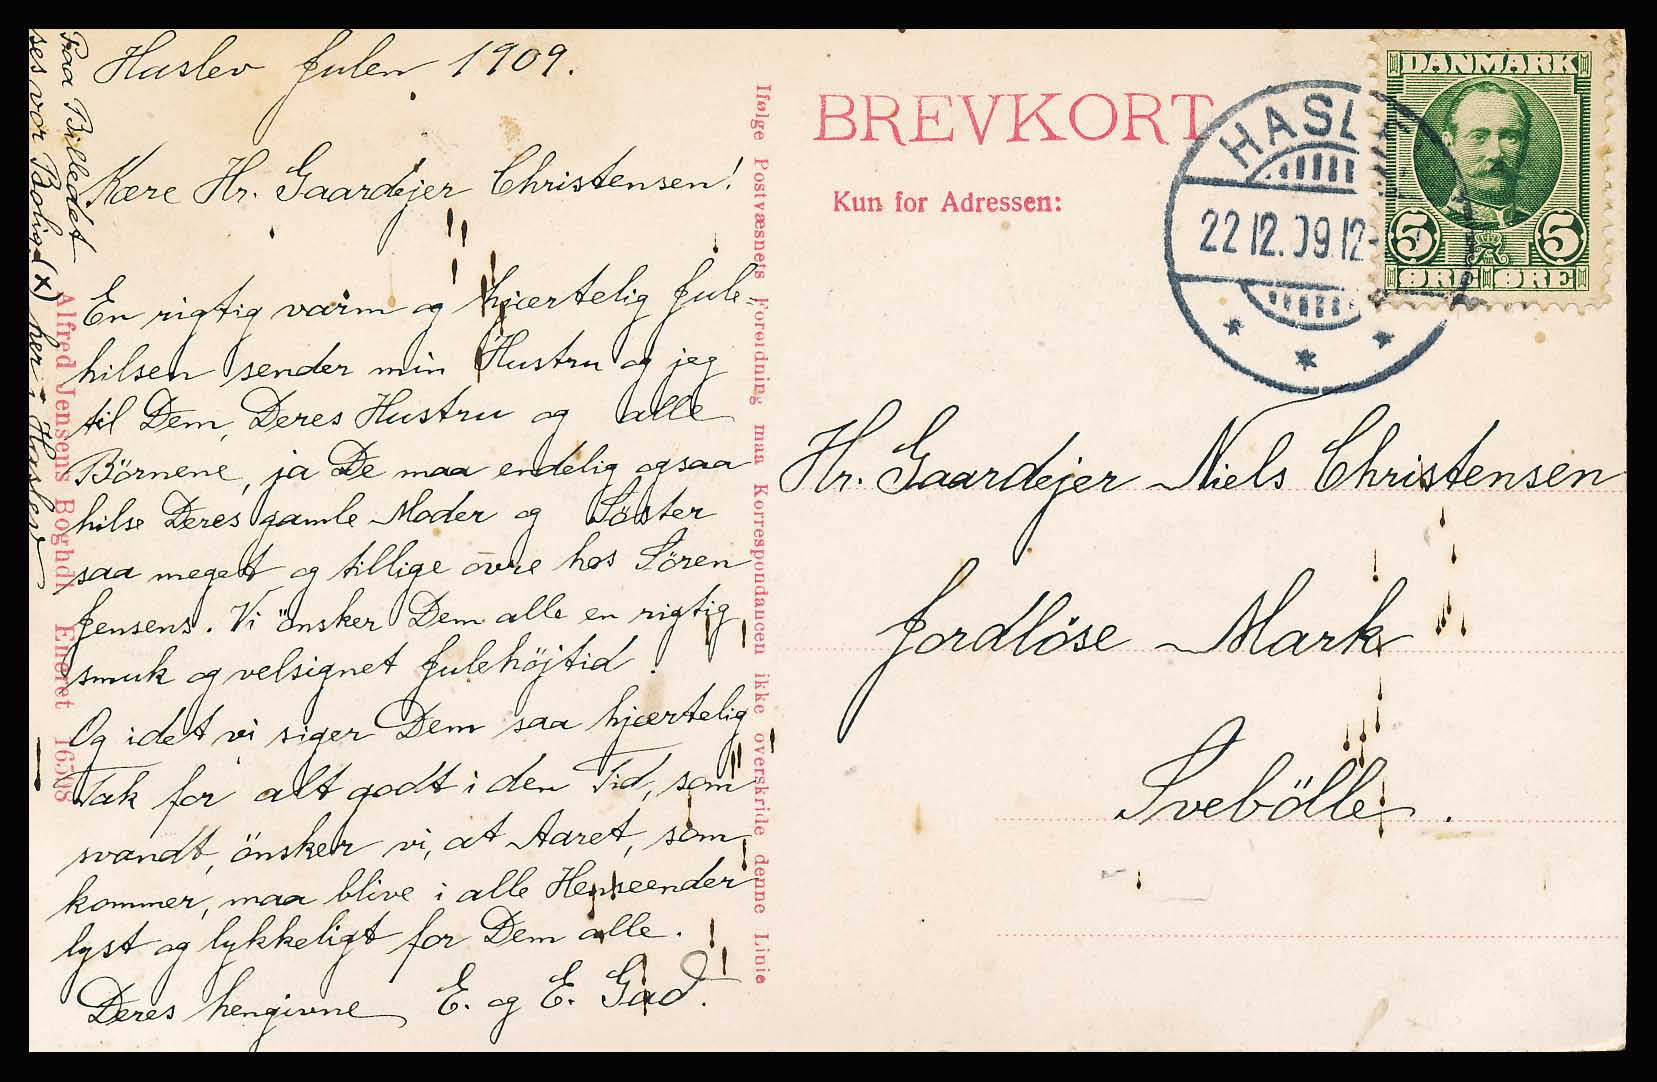 Haslev Julen 1909.
Kære Hr. Gaardejer Christensen!
En rigtig varm og hjærtelig Jule-
hilsen sender min Hustru og jeg
til Dem, Deres Hustru og alle
Börnene, ja De maa endelig ogsaa
hilse Deres gamle Moder og Söster
saa meget og tillige ovre hos Sören
Jensens. Vi önsker Dem alle en rigtig
smuk og velsignet Julehöjtid.
Og idet vi siger Dem saa hjærtelig
Tak for alt godt i den Tid, som
svandt, önsker vi, at Aaret, som
kommer, maa blive i alle Henseender
lyst og lykkeligt for Dem alle.
Deres hengivne E. og E. Gad.
Paa Billedet
ses vor Bolig (x) her i Haslev
Alfred Jensens Boghdl. Eneret 16508
Ifølge Postvæsnets Forordning maa Korrespondancen ikke overskride denne Linie
BREVKORT
Kun for Adressen:
HASLEV
22.12.09.12-
DANMARK
5 5
ØRE ØRE
Hr. Gaardejer Niels Christensen
Jordlöse Mark
Svebölle.